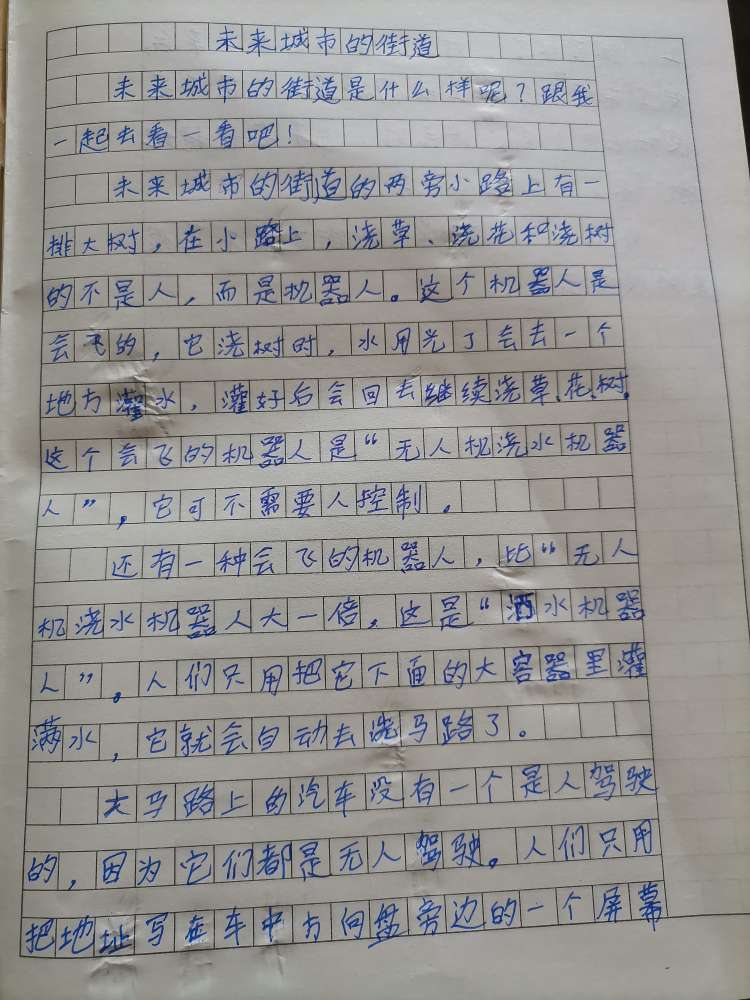 未来城市的街道
未来城市的街道是什么样呢？跟我
一起去看一看吧！
未来城市的街道的两旁小路上有一
排大树，在小路上，浇草、浇花和浇树
的不是人，而是机器人。这个机器人是
会飞的，它浇树时，水用光了会去一个
地方灌水，灌好后会回去继续浇草、花、树。
这个会飞的机器人是“无人机浇水机器
人”，它可不需要人控制。
还有一种会飞的机器人，比“无人
机浇水机器人大一倍，这是“洒水机器
人”。人们只用把它下面的大容器里灌
满水，它就会自动去洗马路了。
大马路上的汽车没有一个是人驾驶
的，因为它们都是无人驾驶。人们只用
把地址写在车中方向盘旁边的一个屏幕